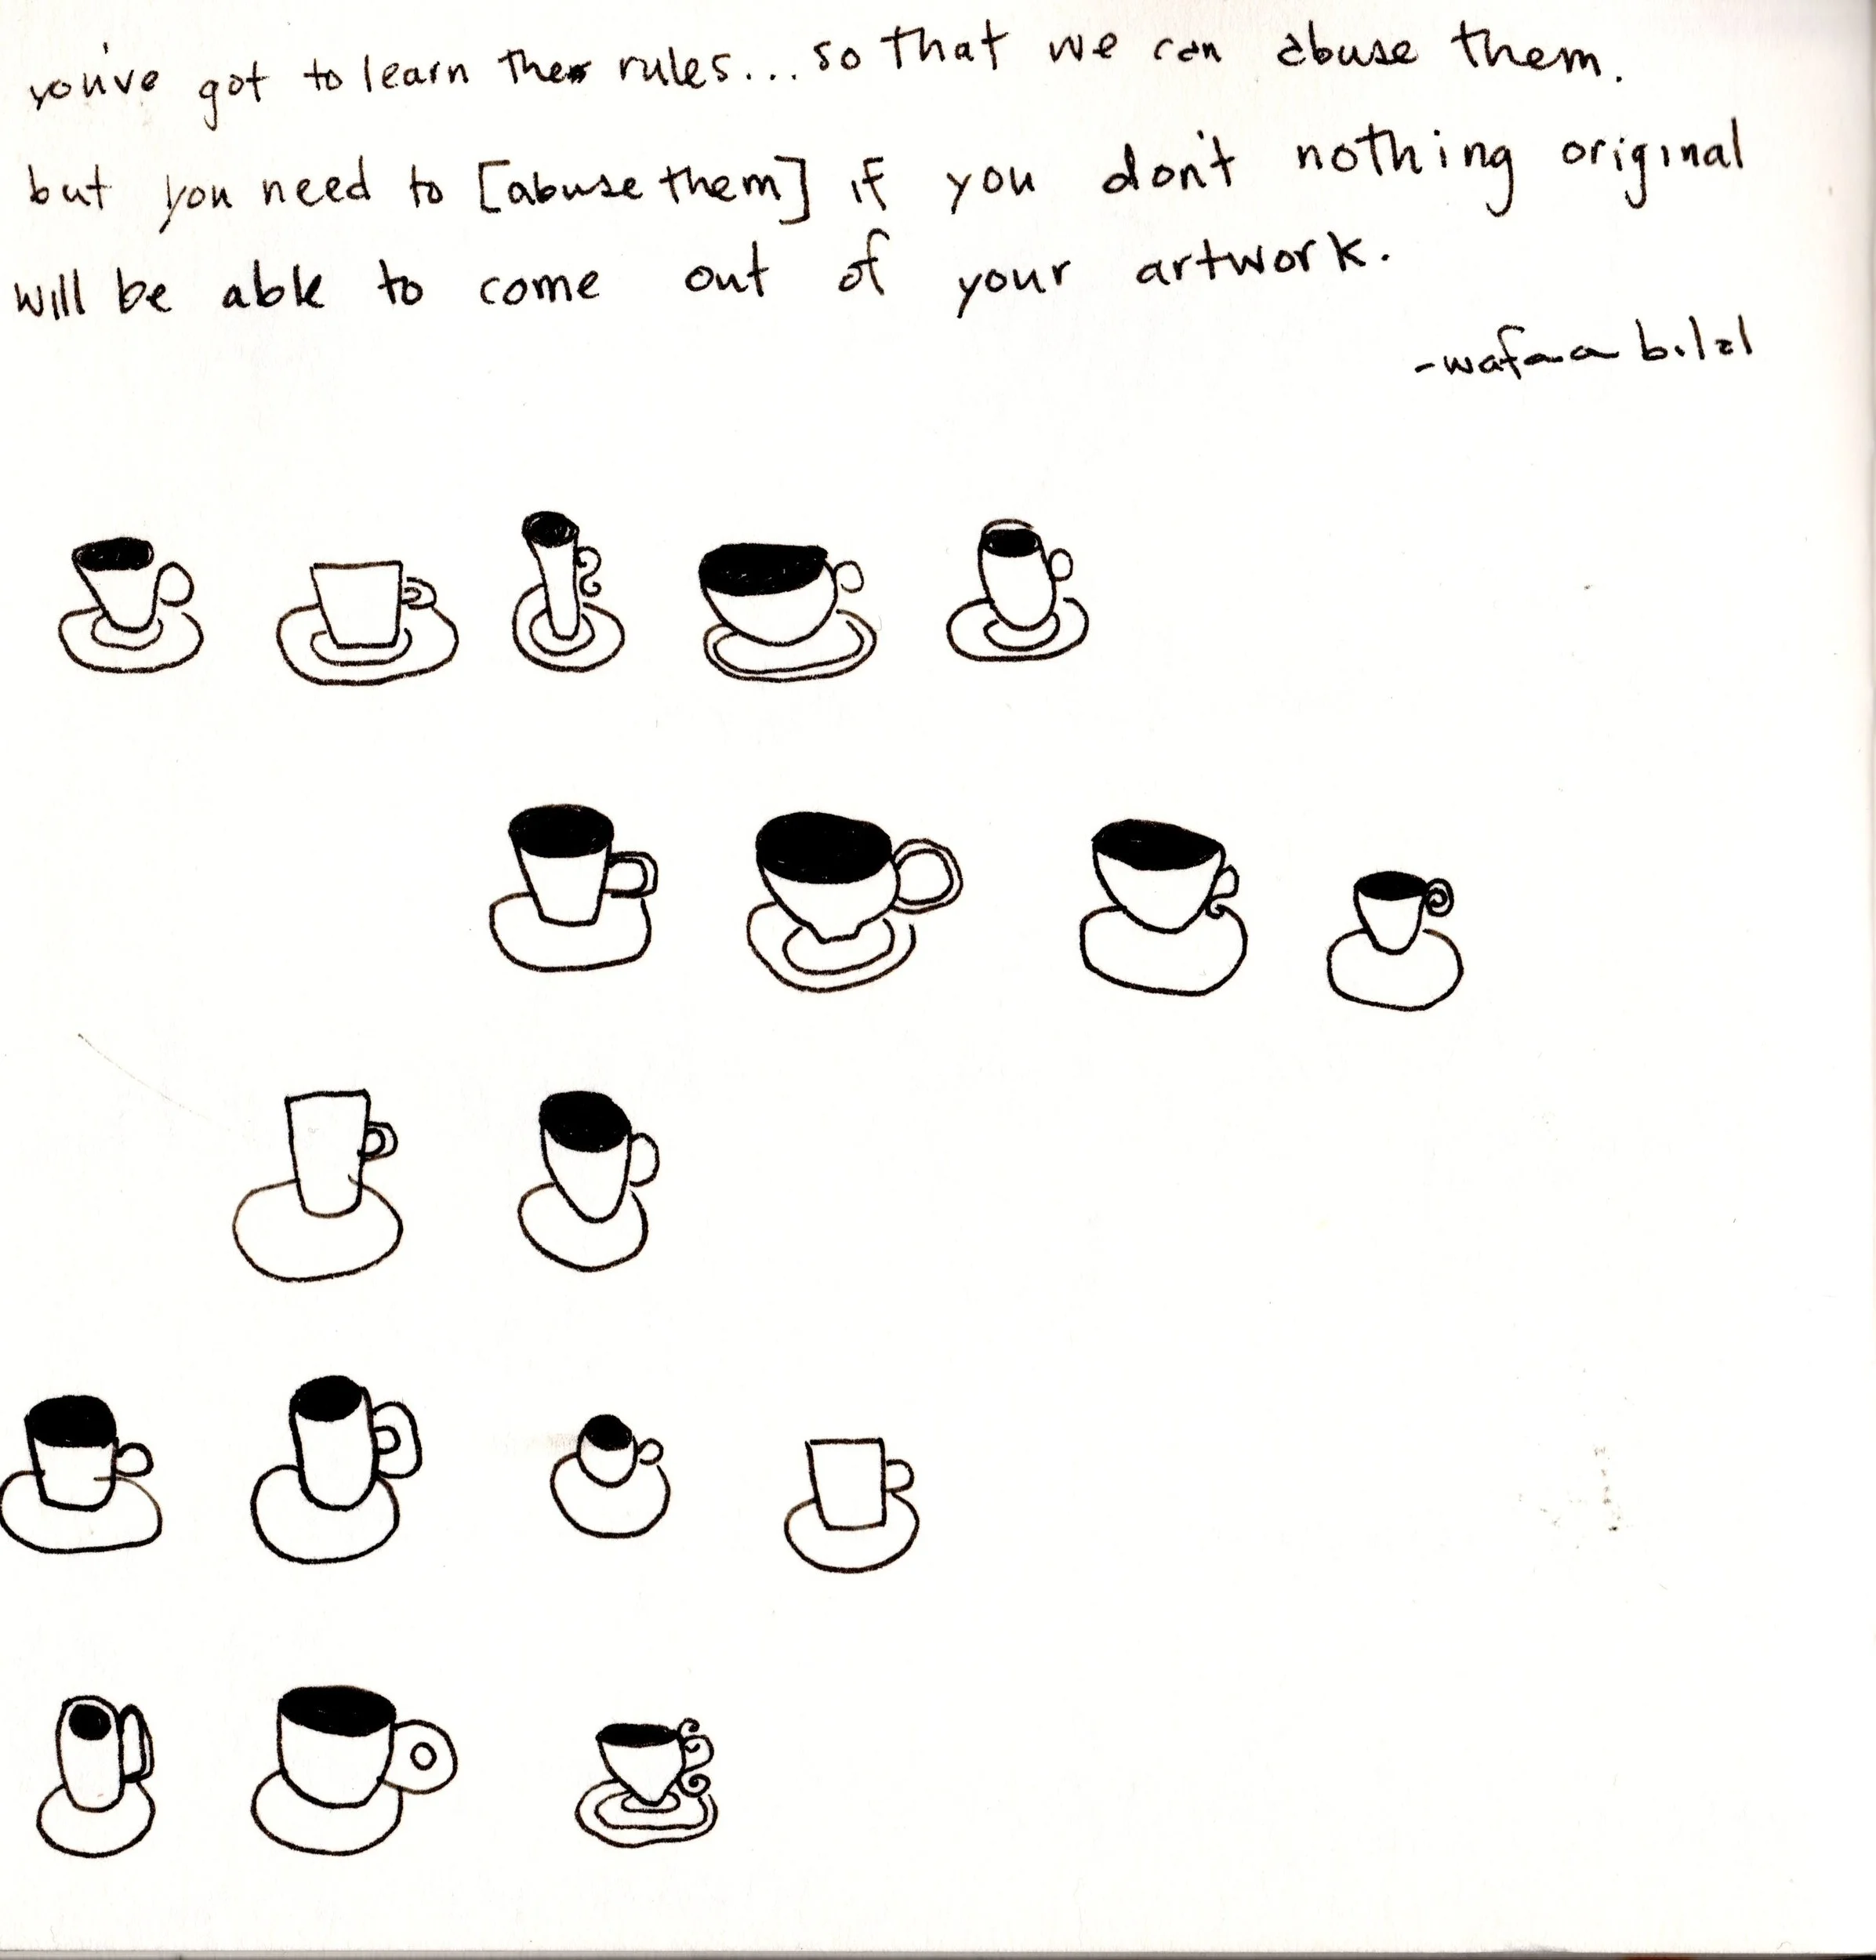 you've got to learn the rules... so that we can abuse them.
but you need to [abuse them] if you don't nothing original
will be able to come out of your artwork.
-wafaa bilal